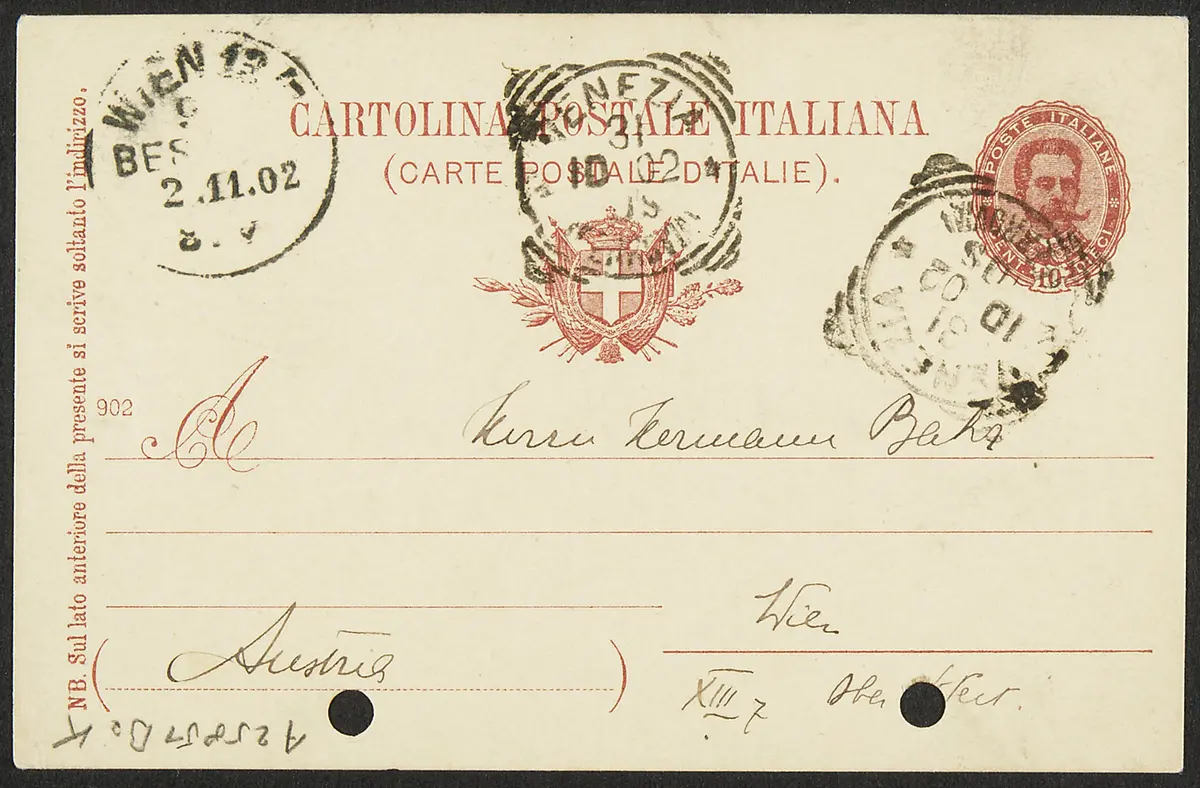 WIEN 13
BES
2.11.02
CARTOLINA POSTALE ITALIANA
(CARTE POSTALE D'ITALIE).
VENEZIA
31
10 02
POSTE ITALIANE
10
VENEZIA
31
10 02
NB. Sul lato anteriore della presente si scrive soltanto l'indirizzo.
902
A
Herrn Hermann Bahr
Wien
Austria
XIII 7